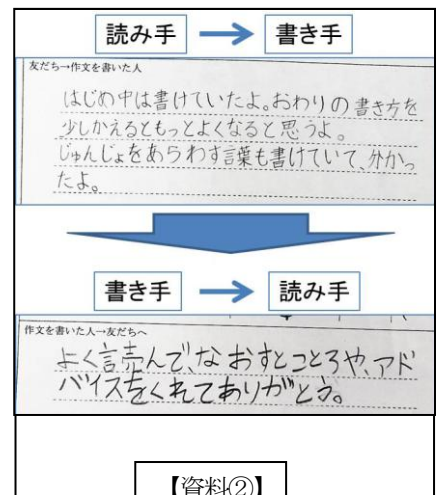 読み手 → 書き手
友だち→作文を書いた人
はじめ中は書けていたよ。おわりの書き方を
少しかえるともっとよくなると思うよ。
じゅんじょをあらわす言葉も書けていて、分かっ
たよ。
書き手 → 読み手
作文を書いた人→友だちへ
よく読んで、なおすとことろや、アド
バイスをくれてありがとう。
【資料②】